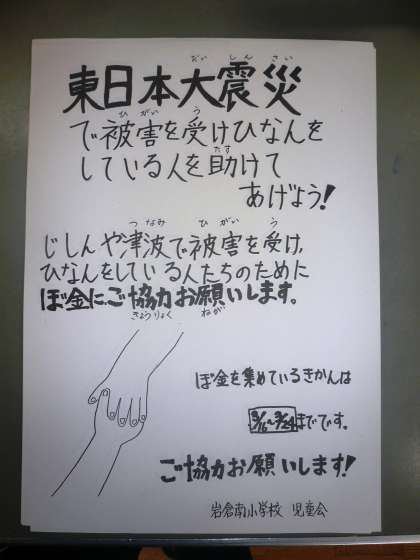 だいしんさい
東日本大震災
ひがい う
で被害を受けひなんを
たす
している人を助けて
あげよう!
つなみ ひがい う
じしんや津波で被害を受け、
ひなんをしている人たちのために
ぼ金に、ご協力お願いします。
きょうりょく ねが
ぼ金を集めているきかんは
3/16~3/24までです。
ご協力お願いします!
岩倉南小学校 児童会